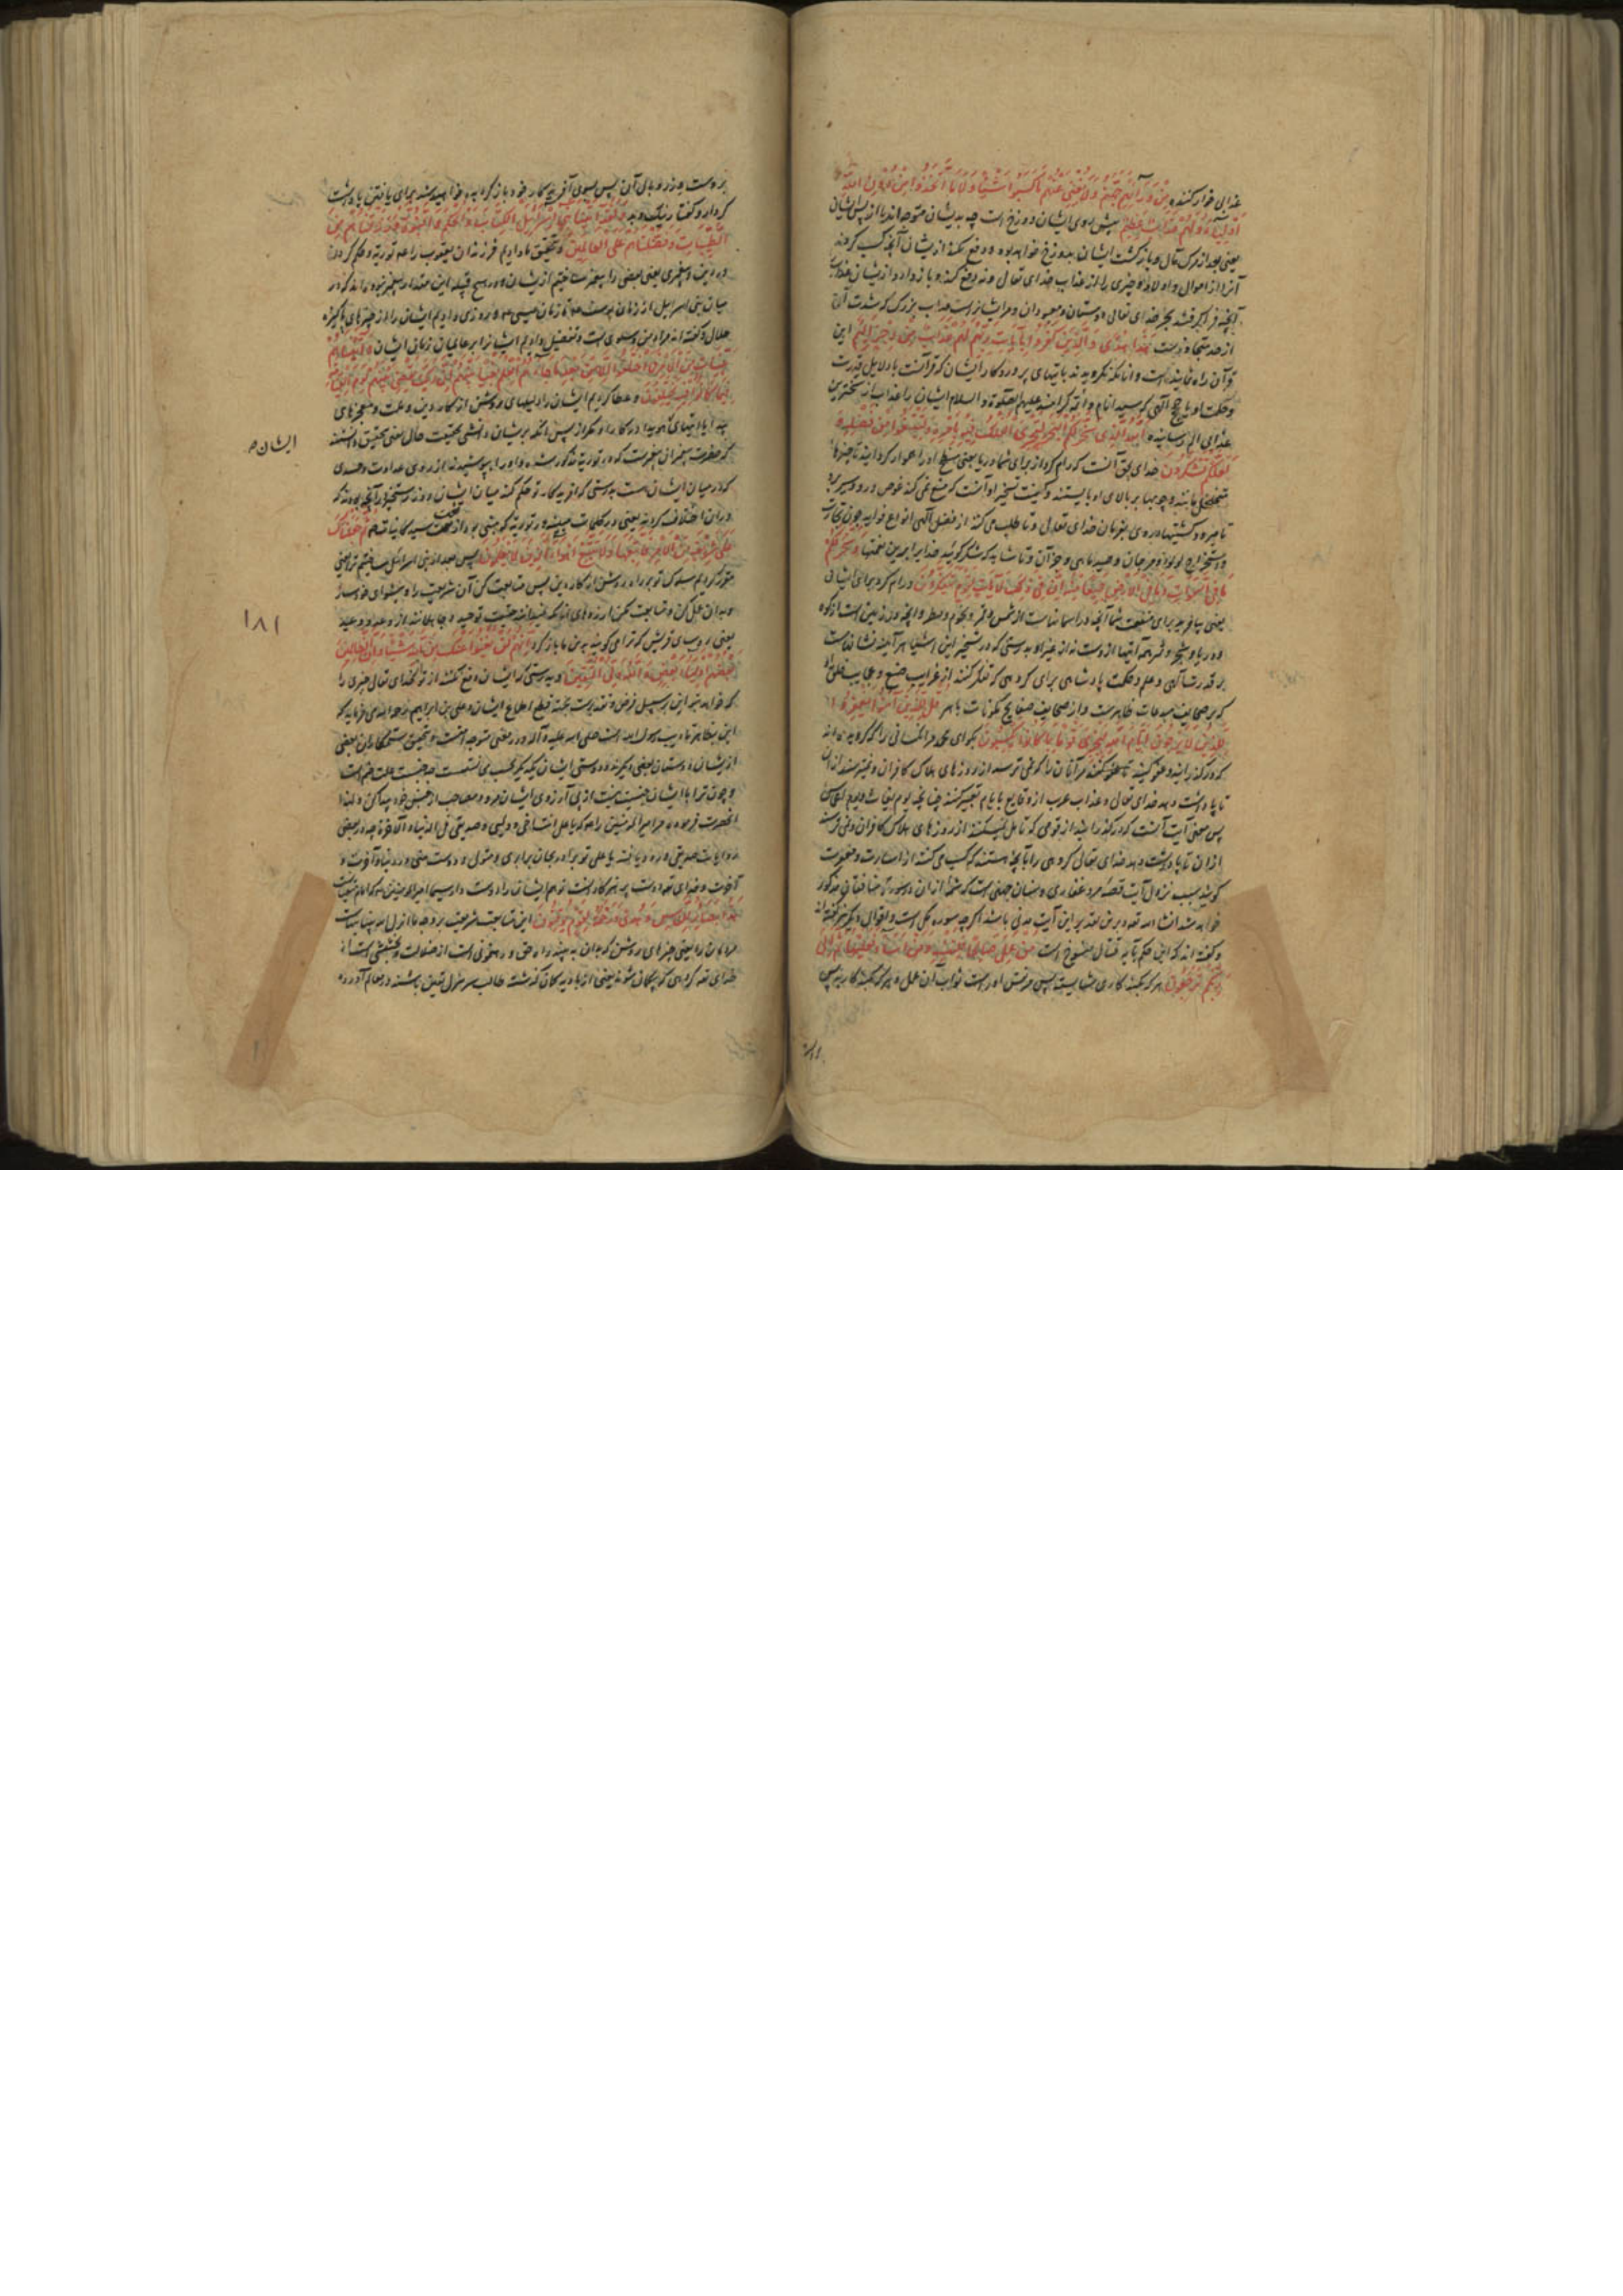 عذابی خوار کننده مِنْ وَرَائِهِمْ جَهَنَّمُ وَلَا يُغْنِي عَنْهُمْ مَا كَسَبُوا شَيْئًا وَلَا مَا اتَّخَذُوا مِنْ دُونِ اللَّهِ
أَوْلِيَاءَ وَلَهُمْ عَذَابٌ عَظِيمٌ پیش روی ایشان دوزخ است چه بدیشان متوجه اند یا از پس ایشان
یعنی بعد از مرگ مآل و بازگشت ایشان بدوزخ خواهد بود و دفع نکند از یشان آنچه کسب کردند
آنرا از اموال و اولاد چیزی را از عذاب خدای تعالی و نه دفع کند و باز دارد از یشان عذاب
آنچه فرا گرفتند بجز خدای تعالی دوستان و معبودان و مر ایشانراست عذاب بزرگ که شدت آن
از حد متجاوزست هَذَا هُدًى وَالَّذِينَ كَفَرُوا بِآيَاتِ رَبِّهِمْ لَهُمْ عَذَابٌ مِنْ رِجْزٍ أَلِيمٌ این
قرآن راه نماینده است و آنانکه نگرویدند بایتهای پروردگار ایشان که قرآنست یا دلایل قدرت
و حکمت او یا حجج الهی که سید انام و ائمه کرامند علیهم الصلوة و السلام ایشان را عذاب از سخترین
عذابی الم رساننده اللَّهُ الَّذِي سَخَّرَ لَكُمُ الْبَحْرَ لِتَجْرِيَ الْفُلْكُ فِيهِ بِأَمْرِهِ وَلِتَبْتَغُوا مِنْ فَضْلِهِ وَ
لَعَلَّكُمْ تَشْكُرُونَ خدای بحق آنست که رام کرد از برای شما دریا یعنی سطح او را هموار گردانید تا چیزها
متخلخل مانند چوبها بر بالای او بایستند و کیفیت تسخیر او آنست که منع نمی کند غوص در و و سیر برو
تا میرود کشتیها در وی بفرمان خدای تعالی و تا طلب می کنند از فضل الهی انواع فواید چون تجارت
و استخراج لولو و مرجان و صید ماهی و جز آن و تا شاید که شکر گوئید خدایرا بدین نعمتها وَسَخَّرَ لَكُمْ
مَا فِي السَّمَاوَاتِ وَمَا فِي الْأَرْضِ جَمِيعًا مِنْهُ إِنَّ فِي ذَلِكَ لَآيَاتٍ لِقَوْمٍ يَتَفَكَّرُونَ و رام کرد برای ایشان
یعنی بیافرید برای منفعت شما آنچه در اسمانهاست از شمس و قمر و نجوم و مطر و آنچه در زمین است از کوه
و دریا و شجر و ثمر همه اینها از وست نه از غیر او بدرستی که در تسخیر این اشیا هر آینه نشانهاست
بر قدرت الهی و علم و حکمت پادشاهی برای گروهی که تفکر کنند از غرایب صنع و عجایب خلق او
که بر صحایف مبدعات ظاهرست و از صحایف صفایح مکونات باهر قُلْ لِلَّذِينَ آمَنُوا يَغْفِرُوا
لِلَّذِينَ لَا يَرْجُونَ أَيَّامَ اللَّهِ لِيَجْزِيَ قَوْمًا بِمَا كَانُوا يَكْسِبُونَ بگو ای محمد مر انکسانی را که گرویده اند
که درگذرانید و عفو کنید تا عفو کنند مر آنان را که نمی ترسند از روزهای هلاک کافران
تا پاداشت دهد خدای تعالی و عذاب عرب از وقایع بایام تعبیر کنند چنانچه یوم بغاث و یوم
پس معنی آیت آنست که درگذرانید از قومی که تامل نمیکنند از روزهای هلاک کافران و نمی ترسند
از ان تا پاداشت دهد خدای تعالی گروهی را بآنچه هستند که کسب می کنند از اسارت و عقوبت
گویند سبب نزول آیت قصه مرد غفاری و سنان جهنی است که شمه از آن در سوره منافقان مذکور
خواهد شد انشاء الله تعه و برین تقدیر این آیت مدنی باشد اگرچه سوره مکی است و بقوال دیگر نیز گفته اند
و گفته اند که این حکم بآیه قتال منسوخ است مَنْ عَمِلَ صَالِحًا فَلِنَفْسِهِ وَمَنْ أَسَاءَ فَعَلَيْهَا ثُمَّ إِلَى
رَبِّكُمْ تُرْجَعُونَ هر که بکند کاری شایسته پس مر نفس اوراست ثواب آن عمل و هر که بکند کار بد پس
بروست وزر و وبال آن پس بسوی آفریدگار خود باز گردانیده خواهید شد برای یافتن پاداشت
کردار و گفتار نیک و بد وَلَقَدْ آتَيْنَا بَنِي إِسْرَائِيلَ الْكِتَابَ وَالْحُكْمَ وَالنُّبُوَّةَ وَرَزَقْنَاهُمْ مِنَ
الطَّيِّبَاتِ وَفَضَّلْنَاهُمْ عَلَى الْعَالَمِينَ و بتحقیق ما دادیم فرزندان یعقوب را علم توریة و حکم کردن
در دین و پیغمبری یعنی بعضی را پیغمبر ساختیم از یشان و در هیچ قبیله این مقدار پیغمبر نبوده اند که در
میان بنی اسرائیل از زمان یوسف ع تا زمان عیسی ع و روزی دادیم ایشان را از چیزهای پاکیزه
حلال و گفته اند مراد من و سلوی است و تفضیل دادیم ایشانرا بر عالمیان زمان ایشان وَآتَيْنَاهُمْ
بَيِّنَاتٍ مِنَ الْأَمْرِ فَمَا اخْتَلَفُوا إِلَّا مِنْ بَعْدِ مَا جَاءَهُمُ الْعِلْمُ بَغْيًا بَيْنَهُمْ إِنَّ رَبَّكَ يَقْضِي بَيْنَهُمْ يَوْمَ الْقِيَامَةِ
فِيمَا كَانُوا فِيهِ يَخْتَلِفُونَ و عطا کردیم ایشان را دلیلهای روشن از کار دین و ملت و معجزهای
هویدا در کار او مگر از پس انکه بدیشان دانشی بحقیقت حال یعنی تحقیق دانستند
که حضرت پیغمبر آن پیغمبرست که در توریة مذکور شده و او را بپوشیدند از روی عداوت و حسدی
که در میان ایشان است بدرستی که افریدگار تو حکم کند میان ایشان روز رستخیز در آنچه بودند که
در ان اختلاف کردند یعنی در کلمات مبینه در توریة که مبنی بود از نعت سید کاینات ص ثُمَّ جَعَلْنَاكَ
عَلَى شَرِيعَةٍ مِنَ الْأَمْرِ فَاتَّبِعْهَا وَلَا تَتَّبِعْ أَهْوَاءَ الَّذِينَ لَا يَعْلَمُونَ پس بعد از بنی اسرائیل ساختیم ترا یعنی
مقرر کردیم سلوک تو بر راه روشن از کار دین پس متابعت کن آن شریعت را و پیشوای خود ساز
و بدان عمل کن و متابعت مکن ارزوهای آنانکه نمیدانند حقیقت توحید و جاهلانند از وعد و وعید
یعنی روسای قریش که ترا می گویند بدین ما باز گرد إِنَّهُمْ لَنْ يُغْنُوا عَنْكَ مِنَ اللَّهِ شَيْئًا وَإِنَّ الظَّالِمِينَ
بَعْضُهُمْ أَوْلِيَاءُ بَعْضٍ وَاللَّهُ وَلِيُّ الْمُتَّقِينَ بدرستی که ایشان دفع نکنند از تو از خدای تعالی چیزی را
که خواهد بتو این بر سبیل فرض و تقدیرست بجهة قطع اطماع ایشان و علی بن ابراهیم رحمه الله می فرماید که
این بظاهر تادیب رسول الله است صلی الله علیه و آله و در معنی متوجه امتست و بتحقیق ستمکاران بعضی
از یشان دوستان بعضی دیگرند و دوستی ایشان
و چون ترا با ایشان جنسیت نیست از پی آرزوی ایشان مرو و مصاحب از جنس خود پیدا کن و لهذا
آنحضرت فرمود مر امیر المؤمنین را که یا علی انت اخی و ولیی و صدیقی فی الدنیا و الآخرة و در بعضی
آخرت و خدای تعه دوست پرهیزکارانست تو هم ایشان را دوست دار سیما امیر المومنین
هَذَا بَصَائِرُ لِلنَّاسِ وَهُدًى وَرَحْمَةٌ لِقَوْمٍ يُوقِنُونَ این متابعت شریعت
مردمان را یعنی چیزهای روشن که بدان به بینند راه حق و رهنمونی است از ضلالت و بخشش است از
خدای تعه گروهی که بیگمان شوند یعنی از بادیه گمان گذشته طالب سر منزل یقین باشند در معالم آورده
ایشان ص
۱۸۱